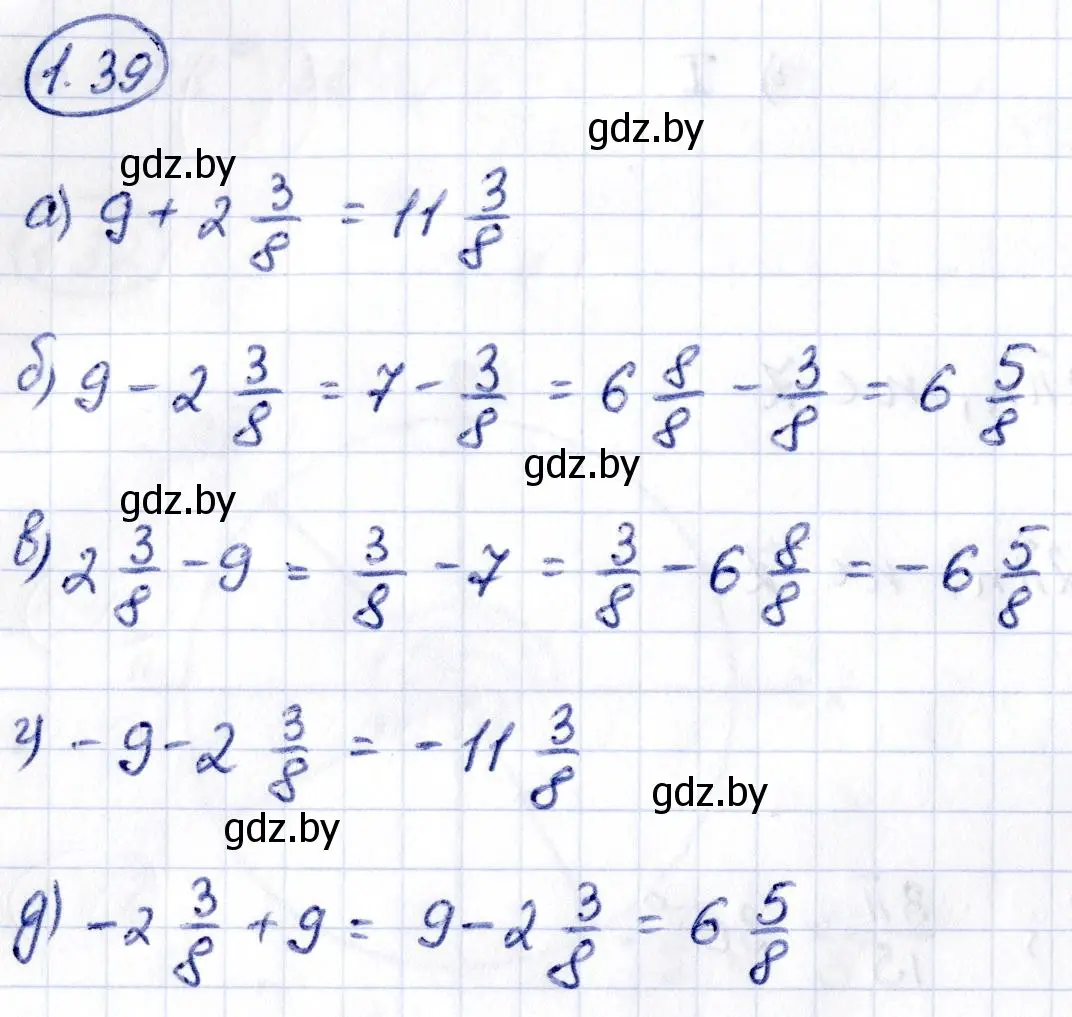 1.39
gdz.by
gdz.by
а) 9 + 2 3/8 = 11 3/8
б) 9 - 2 3/8 = 7 - 3/8 = 6 8/8 - 3/8 = 6 5/8
gdz.by
gdz.by
в) 2 3/8 - 9 = 3/8 - 7 = 3/8 - 6 8/8 = - 6 5/8
г) - 9 - 2 3/8 = - 11 3/8
gdz.by
gdz.by
д) - 2 3/8 + 9 = 9 - 2 3/8 = 6 5/8